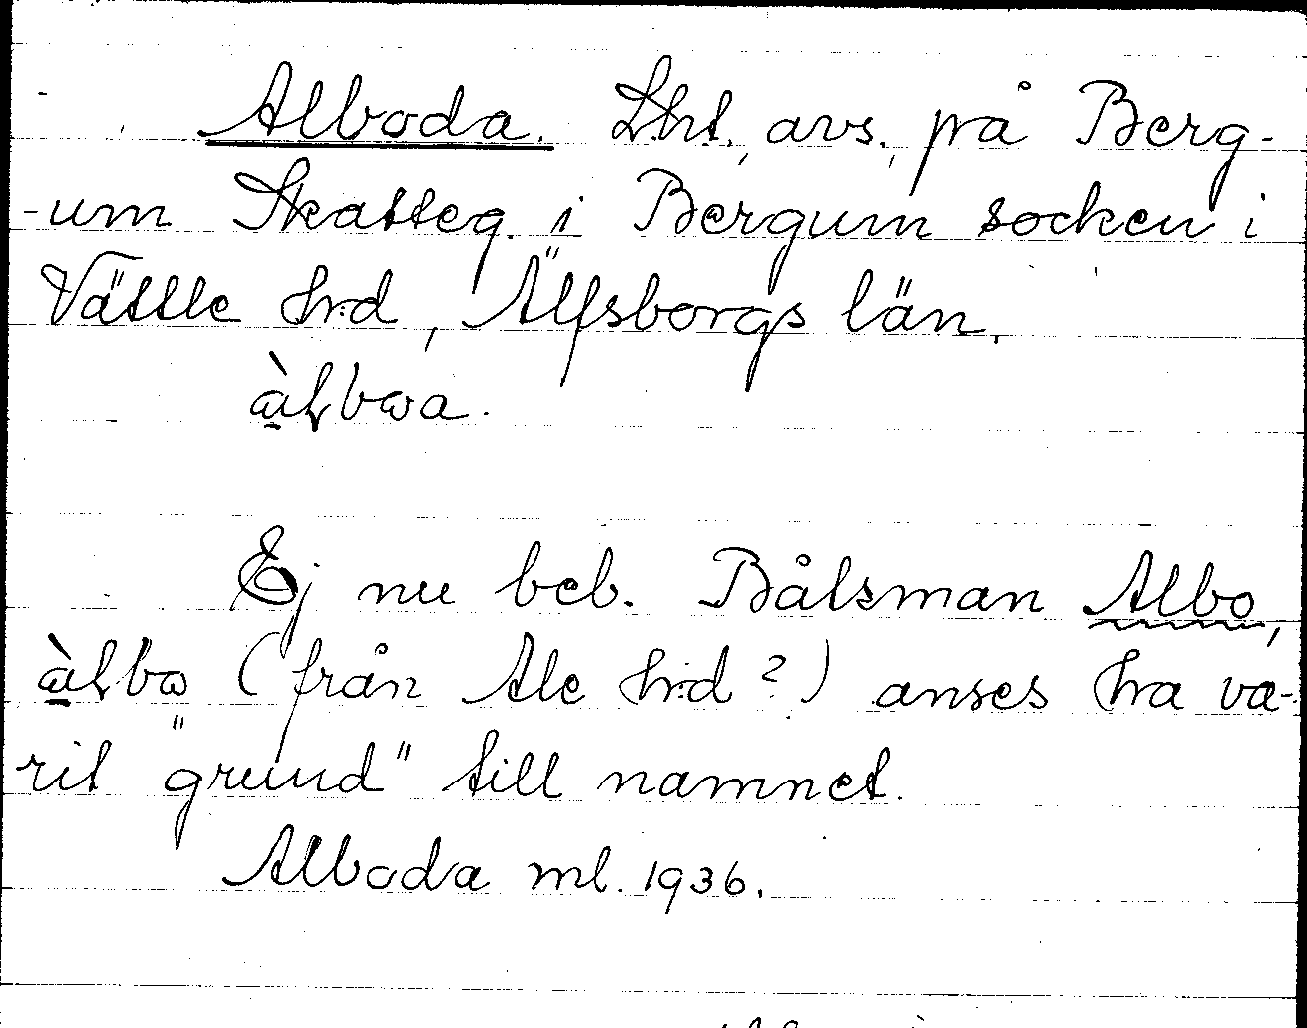 Alboda. Lht., avs., på Berg-
-um Skatteg. i Bergum socken i
Vättle hrd, Älfsborgs län.
àlbωa.
Ej nu beb. Båtsman Albo,
àlbω (från Ale hrd?) anses ha va-
rit "grund" till namnet.
Alboda ml. 1936.